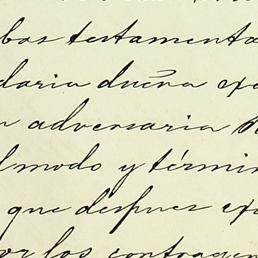 bos testamenta
daria dueña ex
adversaria
modo y térmi
que despues ex
or los contragen